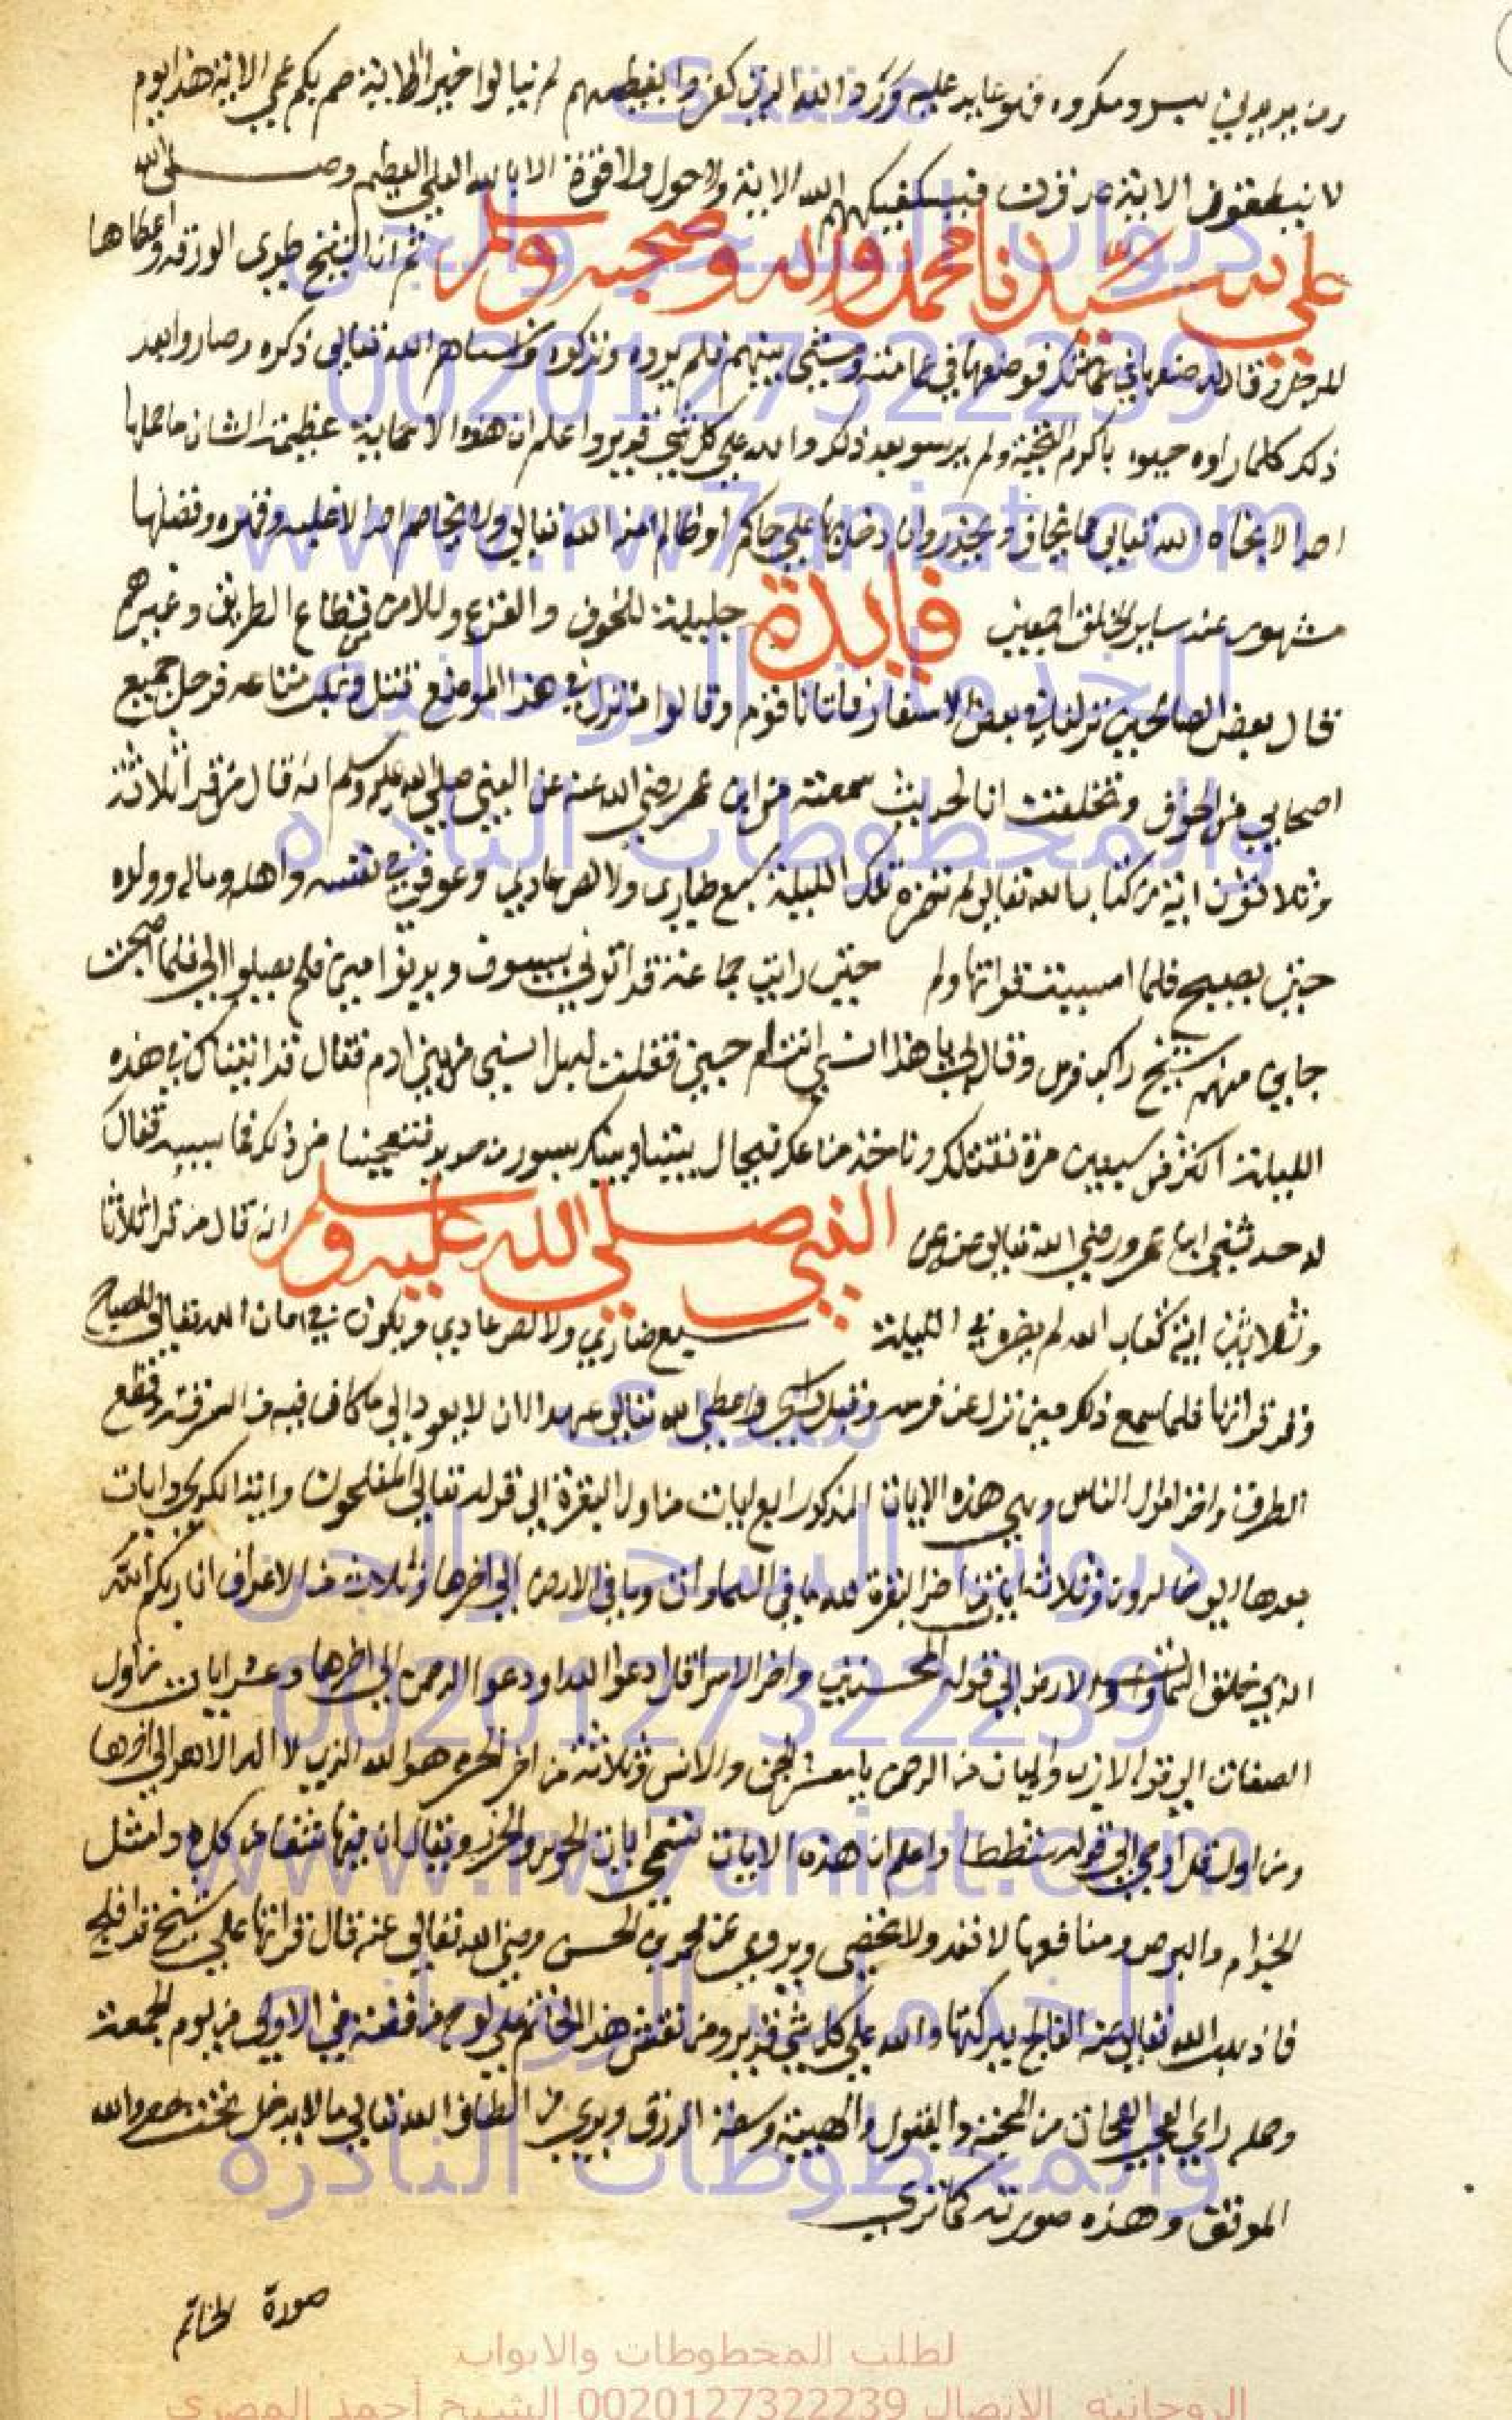 ومن يريدني بسوء ومكروه فهو عايد عليه ورد الله الذين كفروا بغيظهم لم ينالوا خيرا الاية صم بكم عمي الاية هذا يوم
لا ينطقون الاية فسيكفيكهم الله الاية ولا حول ولا قوة الا بالله العلي العظيم وصلى الله
على سيدنا محمد واله وصحبه وسلم ثم ان الشيخ طوى الورقة واعطاها
للرجل وقال له ضعها في عمامتك فوضعها في عمامته ومشى بينهم فلم يروه وتركوه وانساهم الله تعالى ذكره وصاروا بعد
ذلك كلما راوه حيوه باكرم التحية ولم ير سو بعد ذلك والله على كل شي قدير واعلم ان هذه الاحجابة عظيمة الشان ما حملها
احد الا نجاه الله تعالى مما يخاف ويحذر وان دخل بها على حاكم او ظالم امنه الله تعالى ولا يخاصم احد الا غلبه وقهره وفضلها
مشهور عند ساير الخلق اجمعين فايدة جليلة للخوف والفزع وللامن من قطاع الطريق وغيرهم
قال بعض الصالحين نزلنا في بعض الاسفار فاتانا قوم وقالوا من نزل في هذا الموضع متاعه فرحل جميع
اصحابي من الخوف وتخلفت انا لحديث سمعته من ابن عمر رضي الله عنه عن النبي صلى الله عليه وسلم انه قال من قرا ثلاثة
وثلاثون اية من كتاب الله تعالى لم تضره تلك الليلة سبع ضاري ولا لص عادي وعوفي في نفسه واهله وماله وولده
حتى يصبح فلما امسيت قراتها ولم حتى رايت جماعة قد اتوني بسيوف فلم يصلوا الي فلما اصبحت
جاني منهم شيخ راكب فرس وقال لي يا هذا انسي انت ام جني فقلت بل انسي من بني ادم فقال قد اتيناك في هذه
الليلة اكثر من سبعين مرة نقتلك وناخذ متاعك فيحال بيننا وبينك بسور من حديد فتعجبنا من ذلك فما سببه فقال
له حدثني ابن عمر رضي الله تعالى عنه عن النبي صلى الله عليه وسلم انه قال من قرا ثلاثا
وثلاثين اية كتاب الله لم يضره في الليلة سبع ضاري ولا لص عادي ويكون في امان الله تعالى للصباح
وقد قراتها فلما سمع ذلك مني نزل عن فرسه وقبل راسي واعطى الله تعالى عهدا ان لا يعود الى ما كان فيه من السرقة وقطع
الطرق واخذ اموال الناس وهي هذه الايات المذكور اربع ايات من اول البقرة الى قوله تعالى المفلحون واية الكرسي وايات
بعدها الى خالدون وثلاثة ايات من اخر البقرة لله ما في السماوات وما في الارض الى اخرها وثلاث من الاعراف ان ربكم الله
الذي خلق السماوات والارض الى قوله المحسنين واخر الاسرا قل ادعوا الله او ادعوا الرحمن الى اخرها وعشر ايات من اول
الصفات الى قوله لازب وايات من الرحمن يا معشر الجن والانس وثلاثة من اخر الحشر هو الله الذي لا اله الا هو الى اخرها
ومن اول قل اوحي الى قوله شططا واعلم ان هذه الايات تسمى ايات الحرس والحرز ويقال ان فيها شفا من كل دا مثل
الجذام والبرص ومنافعها لا تعد ولا تحصى ويروى عن محمد بن الحسن رضي الله تعالى عنه قال قراتها على شيخ قد افلج
فاذهب الله تعالى عنه الفالج ببركتها والله على كل شي قدير ومن نقش هذا الخاتم على لوح من فضة في الاولى من يوم الجمعة
وحمله راى العجب العجاب من المحبة والقبول والهيبة وسعة الرزق ويرى من الطاف الله تعالى ما لا يدخل تحت حصر والله
الموفق وهذه صورته كما ترى
صورة الخاتم
منتدى
ديوان السحر والجن
0020127322239
www.rw7aniat.com
للخدمات الروحانيه
والمخطوطات النادره
منتدى
ديوان السحر والجن
0020127322239
www.rw7aniat.com
للخدمات الروحانيه
والمخطوطات النادره
لطلب المخطوطات والابواب
الروحانيه الاتصال 0020127322239 الشيخ أحمد المصري